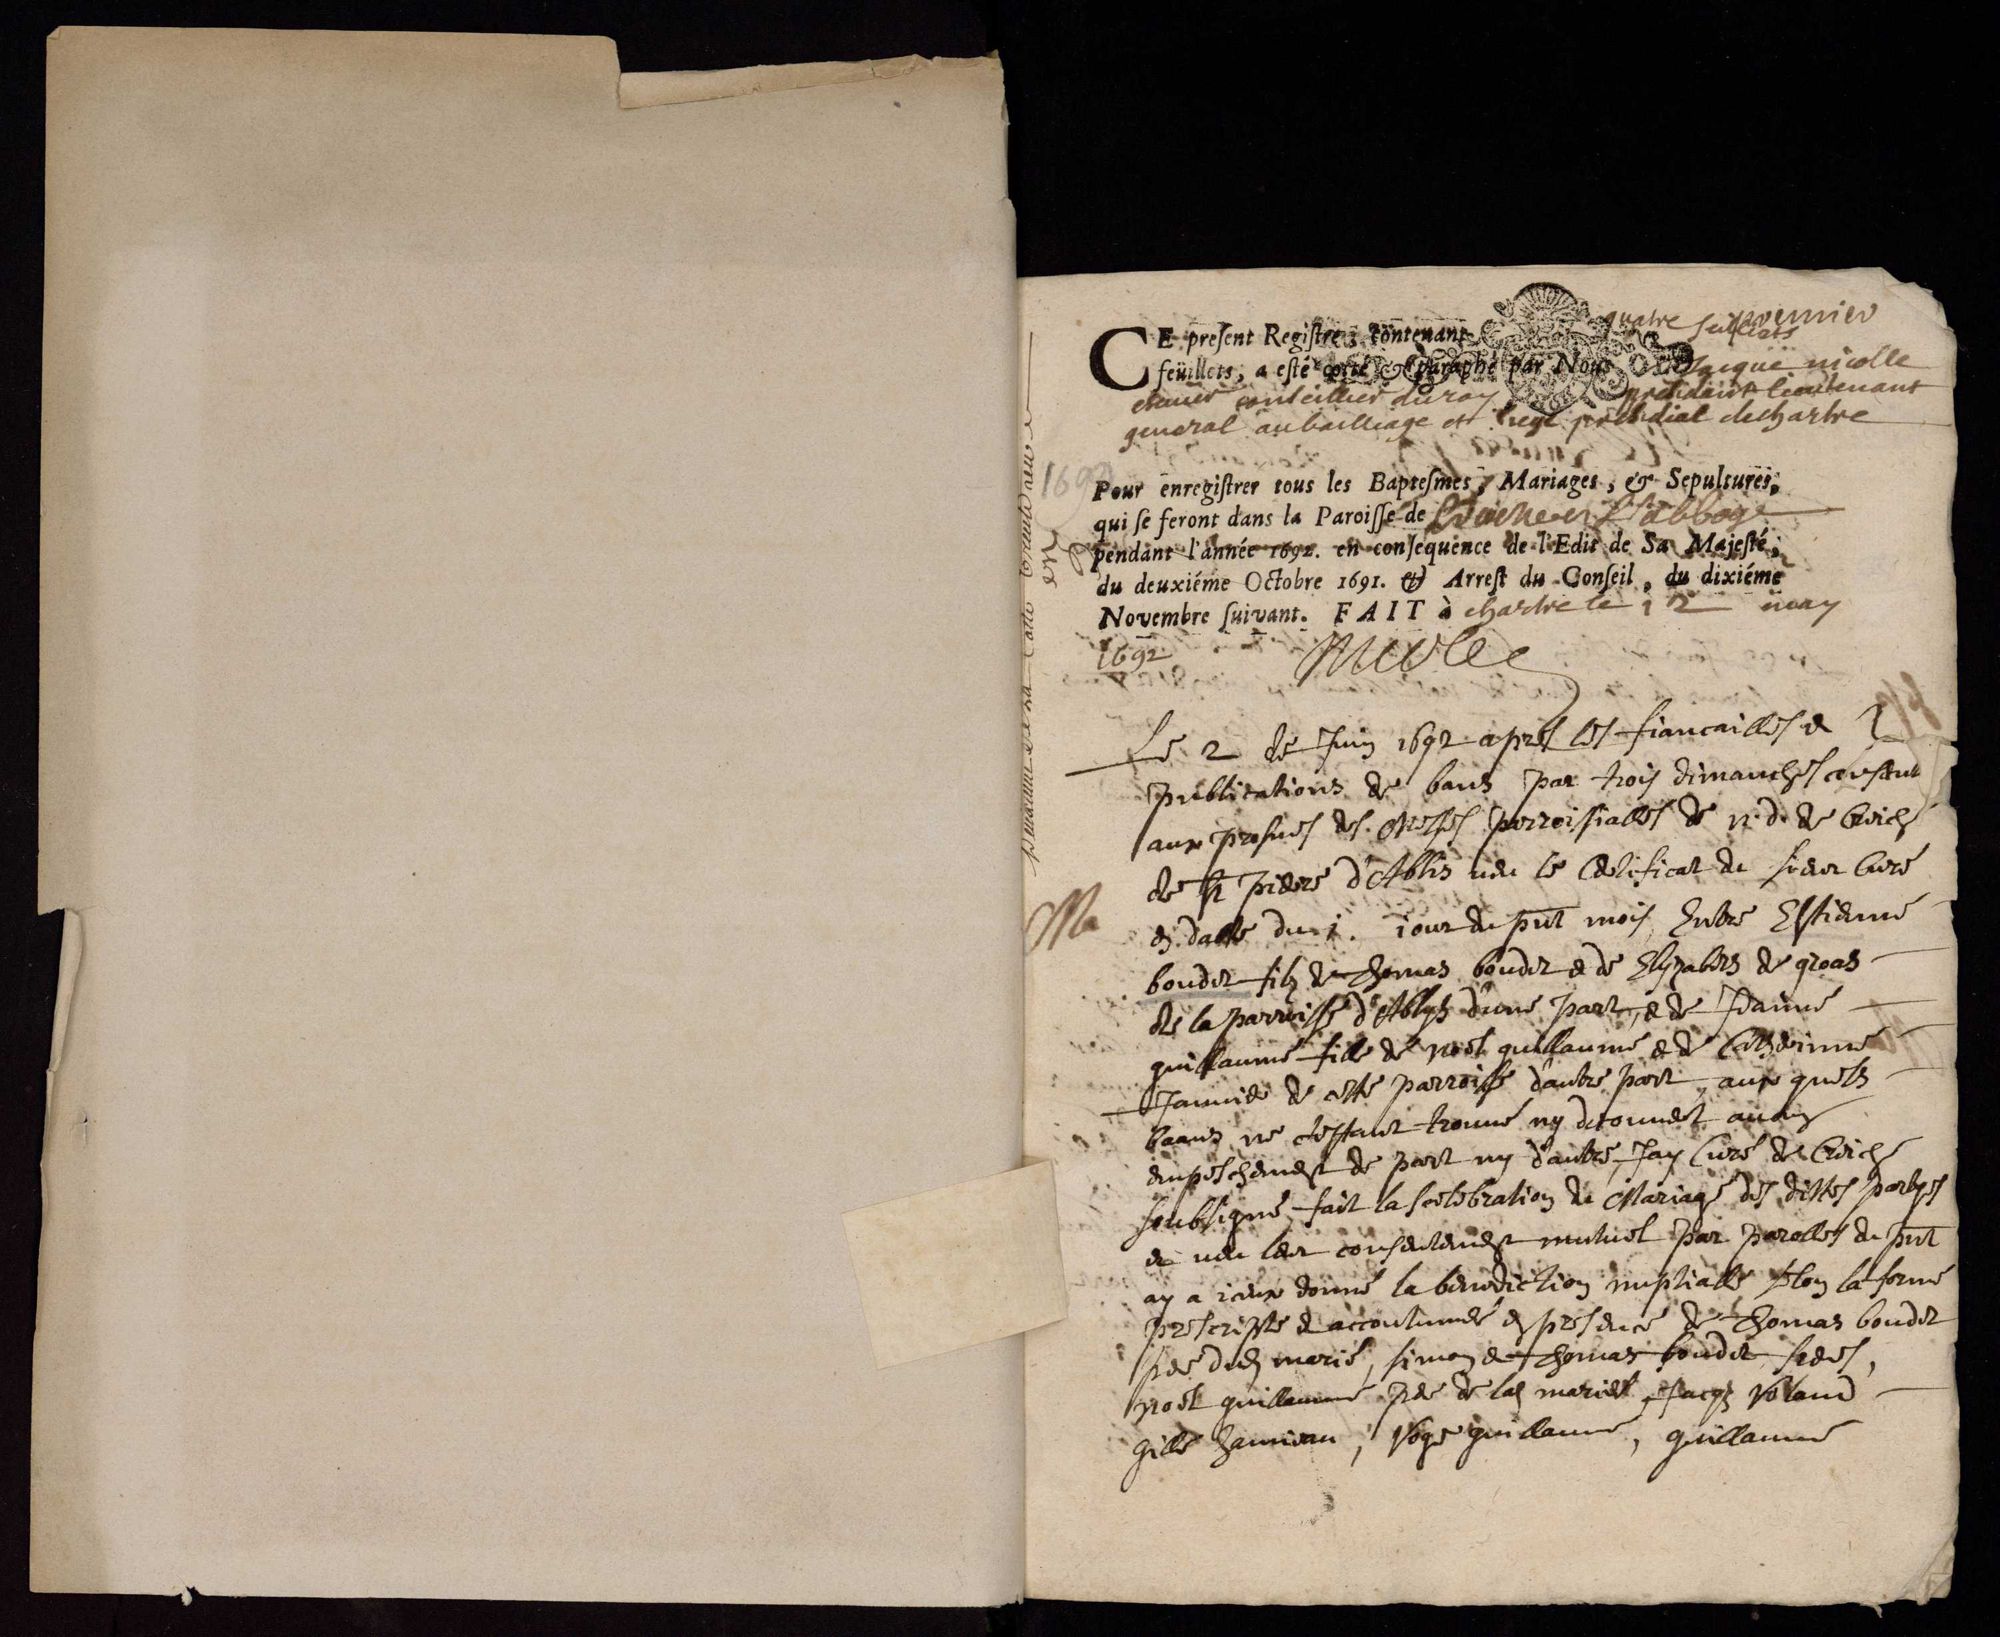 quatre feüillets premier
CE preſent Regiſtre, contenant
feüillets, a eſté cotté & paraphé par Nous Jacque nicolle
conseiller du roy president lieutenant
general au bailliage et siege presidial de chartre
1692
Pour enregiſtrer tous les Bapteſmes, Mariages, & Sepultures,
qui ſe feront dans la Paroiſſe de l'abbaye
pendant l'année 1692. en conſequence de l'Edit de Sa Majeſté,
du deuxiéme Octobre 1691. & Arreſt du Conſeil, du dixiéme
Novembre ſuivant. FAIT à chartre le 12 may
1692
Nicole
Le 2 de Juin 1692 apres les fiancailles &
publications de bans par trois dimanches
aux prosnes des Messes parroissialles de n. d. de
de st pierre d'Ablis veu le Certificat du sieur Curé
en datte du 1. iour du pnt mois, Entre Estienne
Ma
boudet filz de Thomas boudet & de Elyzabeth de
de la parroisse d'Ablys d'une part, & de Jeanne
guillaume fille de noel guillaume & de Catherinne
de cette parroisse d'autre part, aux quels
baans ne s'estant trouué ny aucun
empeschement de part ny d'autre, Jay Curé de
soubsigné fait la scelebration du Mariage des dittes partyes
et veu leur consentement mutuel par parolles de pnt
ay a iceux donné la benediction nuptialle selon la forme
prescripte & accoutumée en presence de Thomas boudet
pere dud marié, simon & Thomas boudet freres,
noel guillaume pere de lad mariée, Jacqs
gille guillaume, guillaume